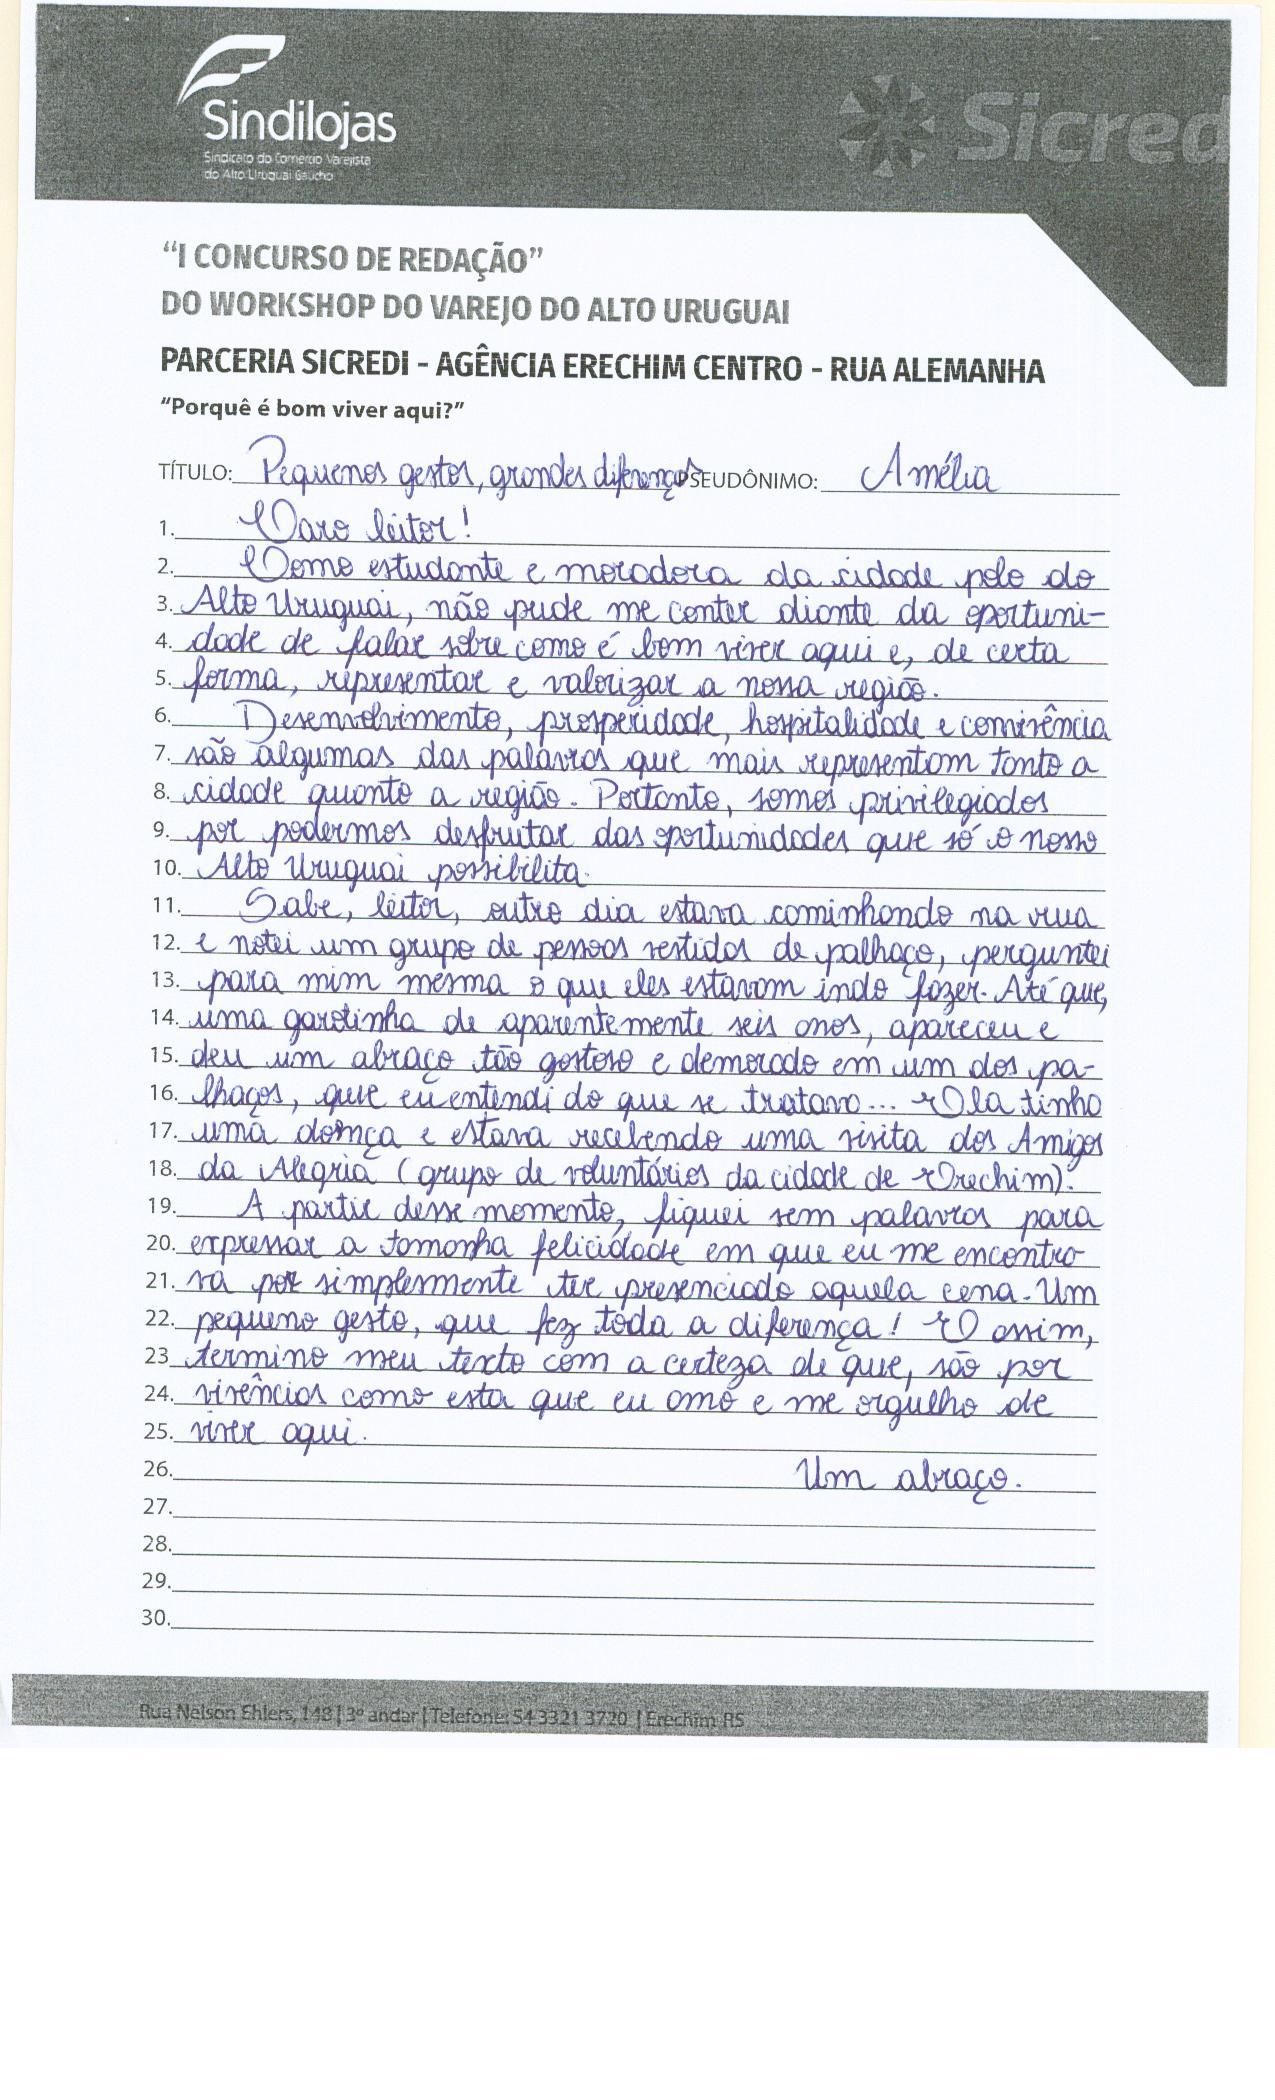 Sindilojas
Sindicato do Comércio Varejista
do Alto Uruguai Gaúcho
Sicred
“I CONCURSO DE REDAÇÃO”
DO WORKSHOP DO VAREJO DO ALTO URUGUAI
PARCERIA SICREDI - AGÊNCIA ERECHIM CENTRO - RUA ALEMANHA
“Porquê é bom viver aqui?”
TÍTULO: Pequenos gestos, grandes diferenças PSEUDÔNIMO: Amélia
1. Caro leitor!
2. Como estudante e moradora da cidade polo do
3. Alto Uruguai, não pude me conter diante da oportuni-
4. dade de falar sobre como é bom viver aqui e, de certa
5. forma, representar e valorizar a nossa região.
6. Desenvolvimento, prosperidade, hospitalidade e convivência
7. são algumas das palavras que mais representam tanto a
8. cidade quanto a região. Portanto, somos privilegiados
9. por podermos desfrutar das oportunidades que só o nosso
10. Alto Uruguai possibilita.
11. Sabe, leitor, outro dia estava caminhando na rua
12. e notei um grupo de pessoas vestidas de palhaço, perguntei
13. para mim mesma o que eles estavam indo fazer. Até que,
14. uma garotinha de aparentemente seis anos, apareceu e
15. deu um abraço tão gostoso e demorado em um dos pa-
16. lhaços, que eu entendi do que se tratava... Ela tinha
17. uma doença e estava recebendo uma visita dos Amigos
18. da Alegria (grupo de voluntários da cidade de Erechim).
19. A partir desse momento, fiquei sem palavras para
20. expressar a tamanha felicidade em que eu me encontra
21. va por simplesmente ter presenciado aquela cena. Um
22. pequeno gesto, que fez toda a diferença! E assim,
23 termino meu texto com a certeza de que, são por
24. vivências como esta que eu amo e me orgulho de
25. viver aqui.
26. Um abraço.
27.
28.
29.
30.
Rua Nelson Ehlers, 148 | 3º andar | Telefone: 54 3321 3720 | Erechim-RS